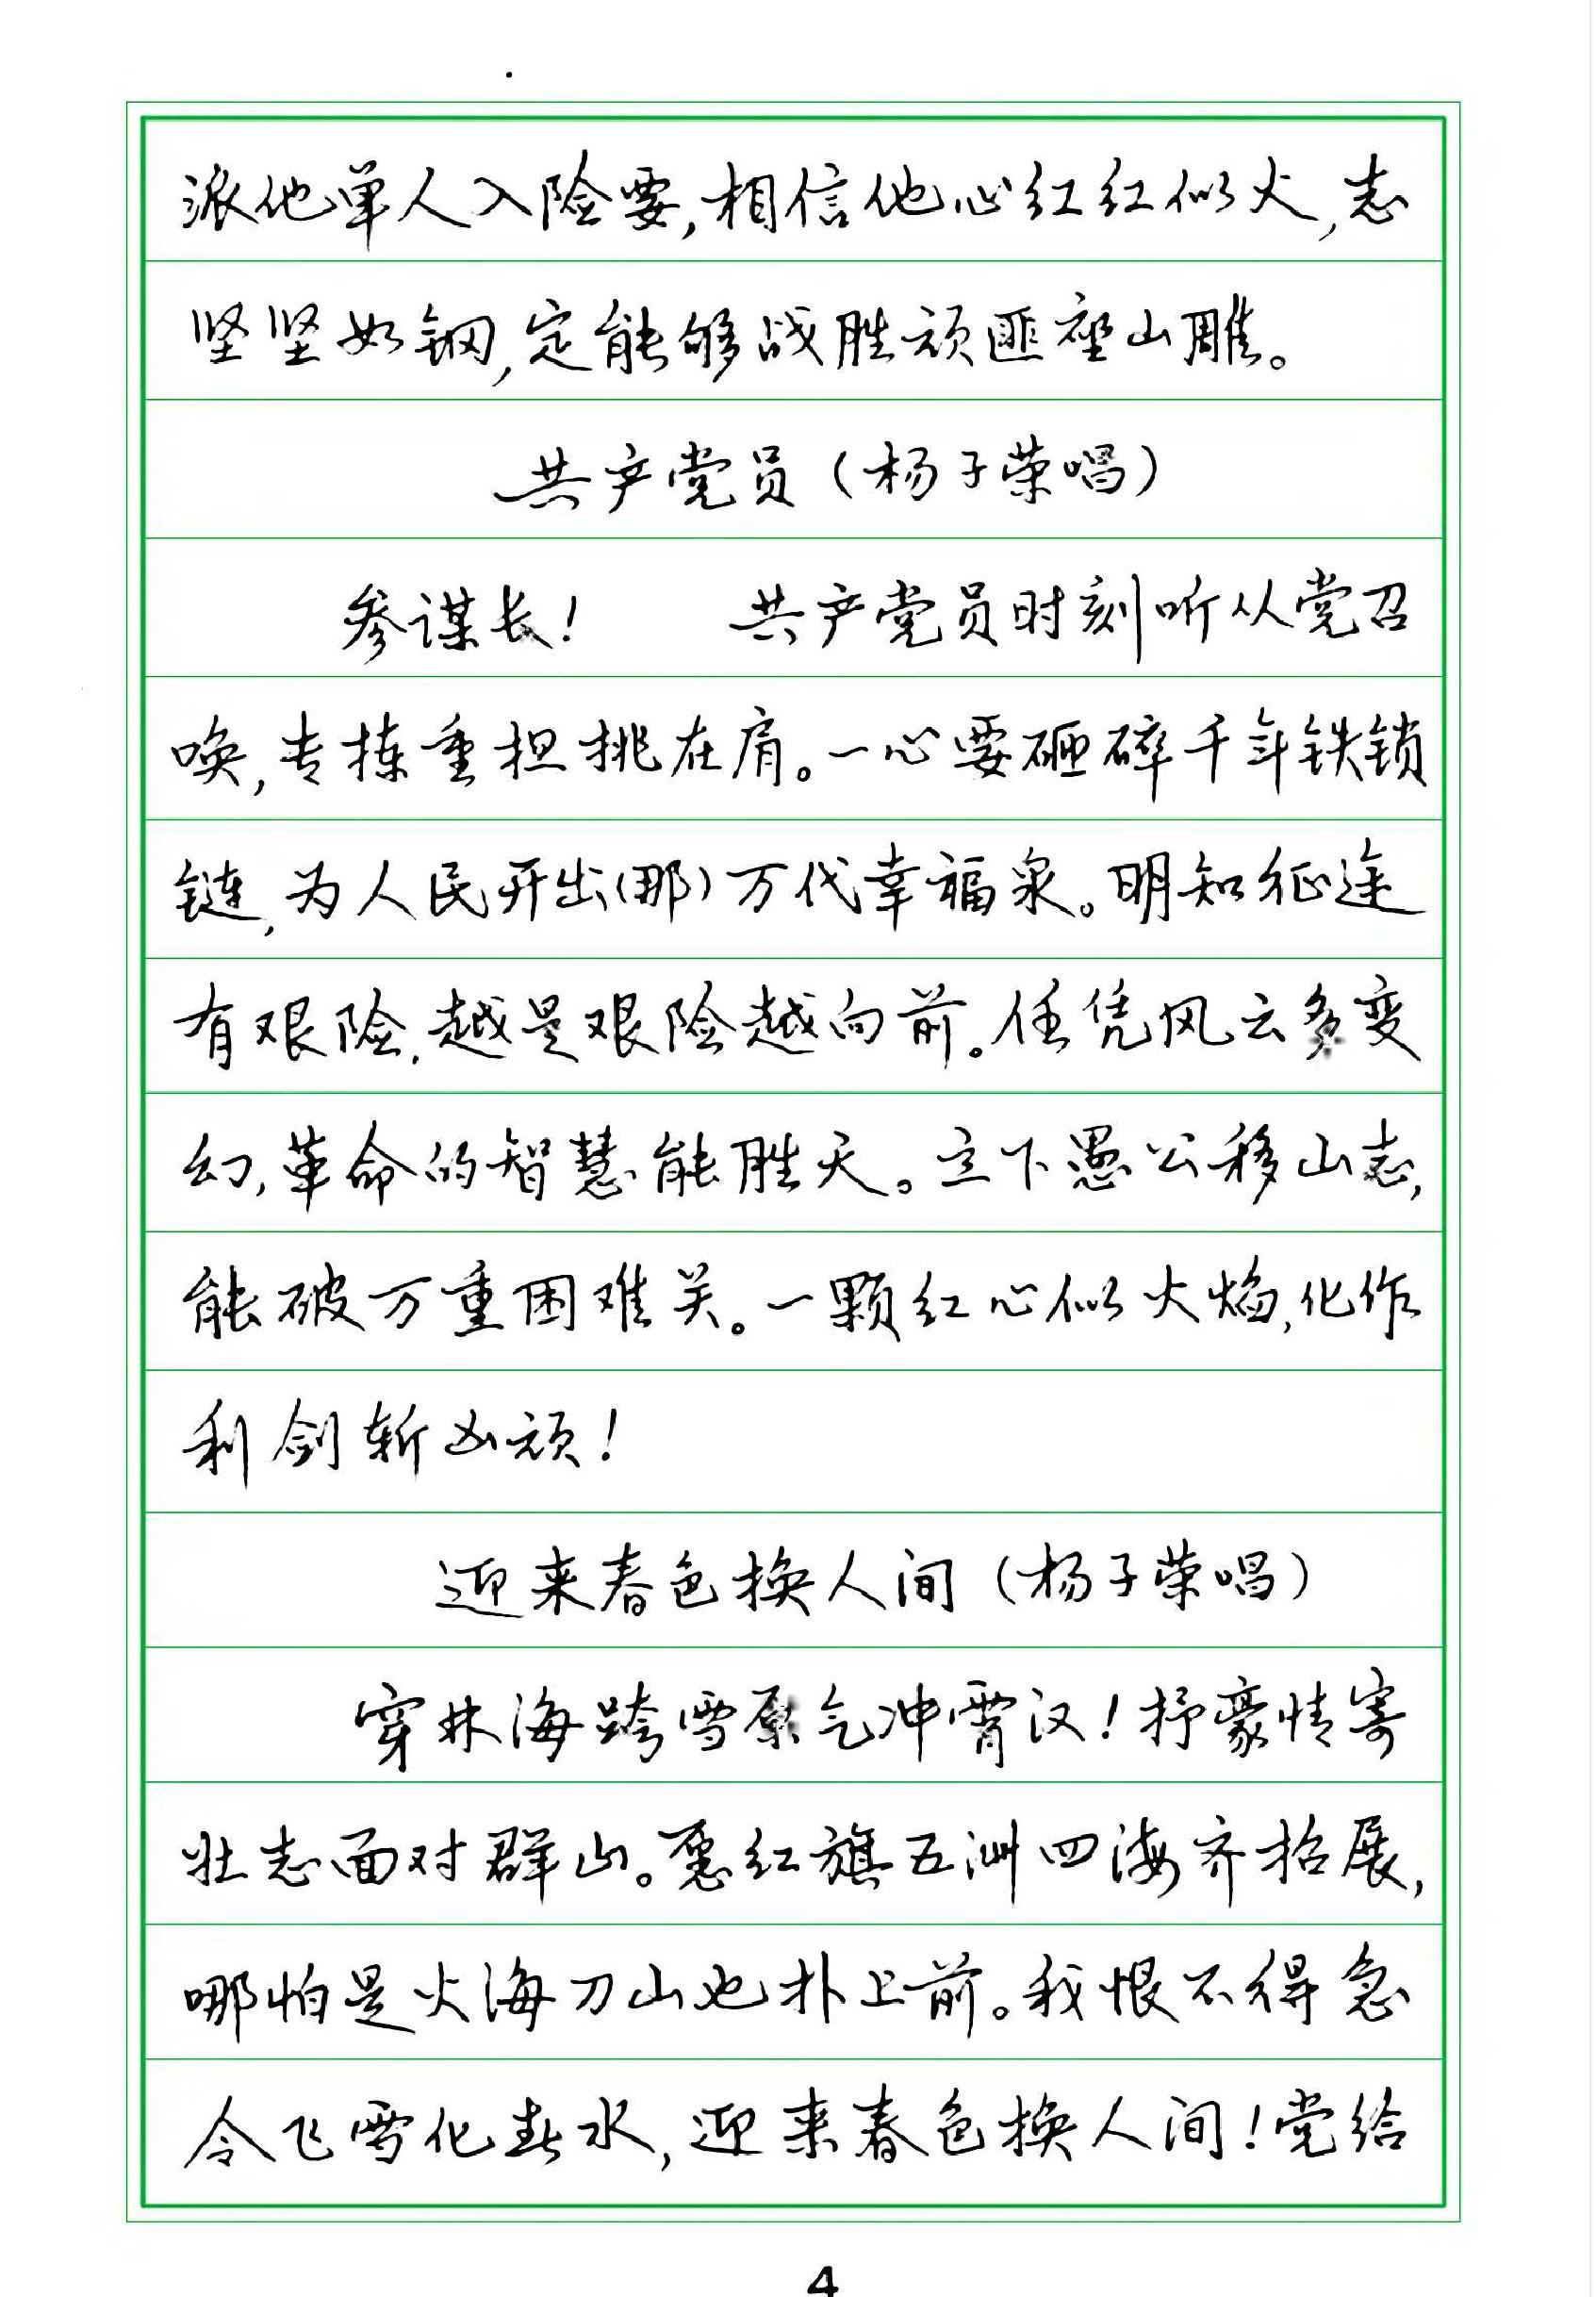 派他单人入险要,相信他心红红似火,志
坚坚如钢,定能够战胜顽匪座山雕。
共产党员(杨子荣唱)
参谋长! 共产党员时刻听从党召
唤,专拣重担挑在肩。一心要砸碎千年铁锁
链,为人民开出(那)万代幸福泉。明知征途
有艰险,越是艰险越向前。任凭风云多变
幻,革命的智慧能胜天。立下愚公移山志,
能破万重困难关。一颗红心似火焰,化作
利剑斩凶顽!
迎来春色换人间(杨子荣唱)
穿林海跨雪原气冲霄汉!抒豪情寄
壮志面对群山。愿红旗五洲四海齐招展,
哪怕是火海刀山也扑上前。我恨不得急
令飞雪化春水,迎来春色换人间!党给
4